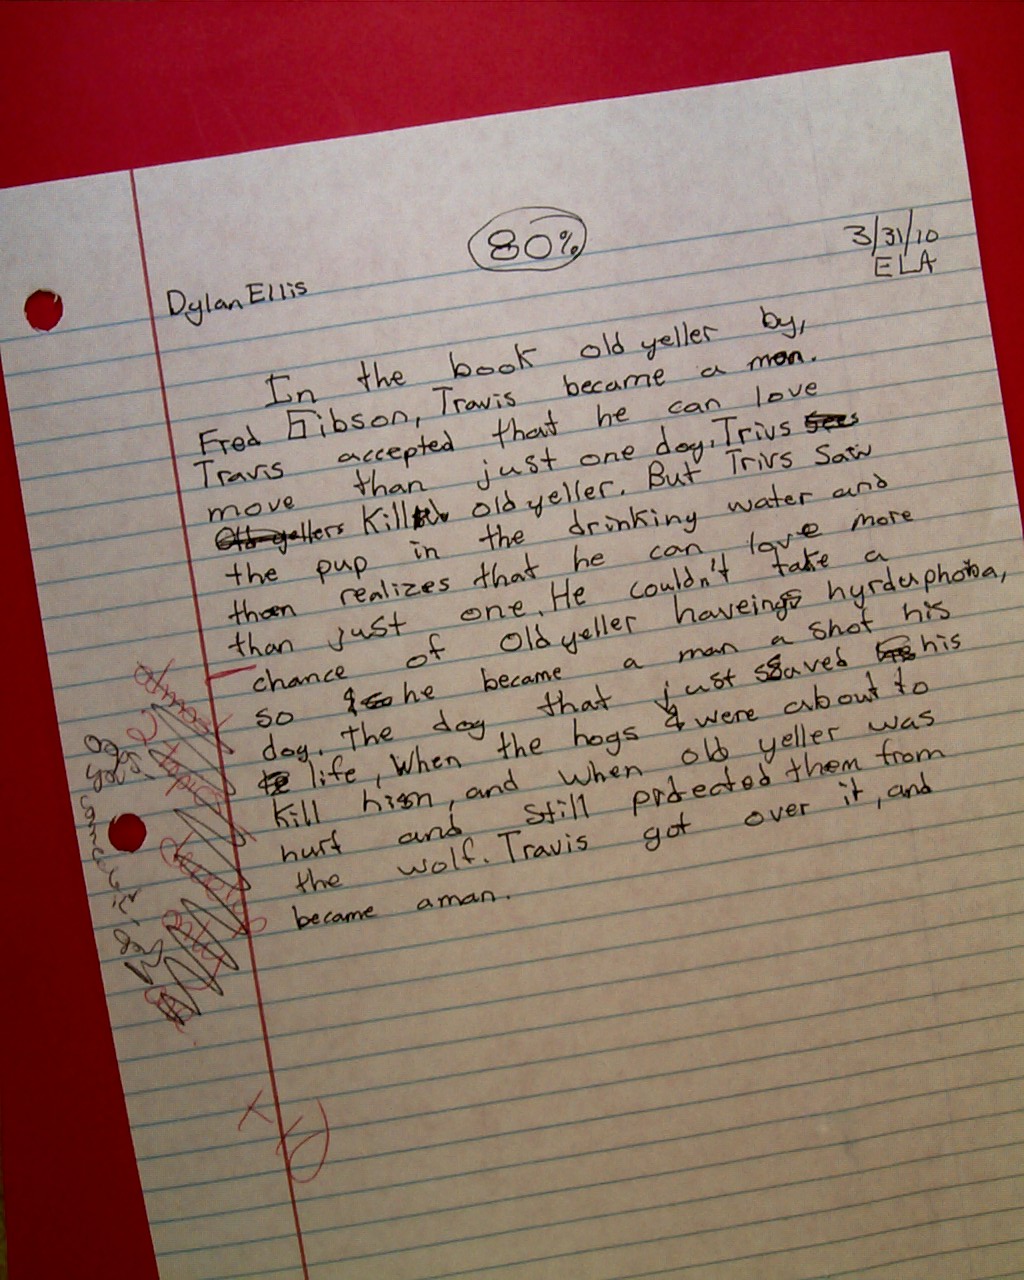 80%
3/31/10
ELA
Dylan Ellis
In the book old yeller by,
Fred Gibson, Travis became a man.
Travis accepted that he can love
move than just one dog. Trivs
Old yellers Kill old yeller. But Trivs Saw
the pup in the drinking water and
then realizes that he can love more
than just one. He couldn't take a
chance of Old yeller haveing hyrderphobia,
so he became a man a shot his
dog. The dog that just saved his
life, When the hogs were about to
kill him, and when old yeller was
hurt and still protected them from
the wolf. Travis got over it, and
became a man.
almost
2 topics
oops
you